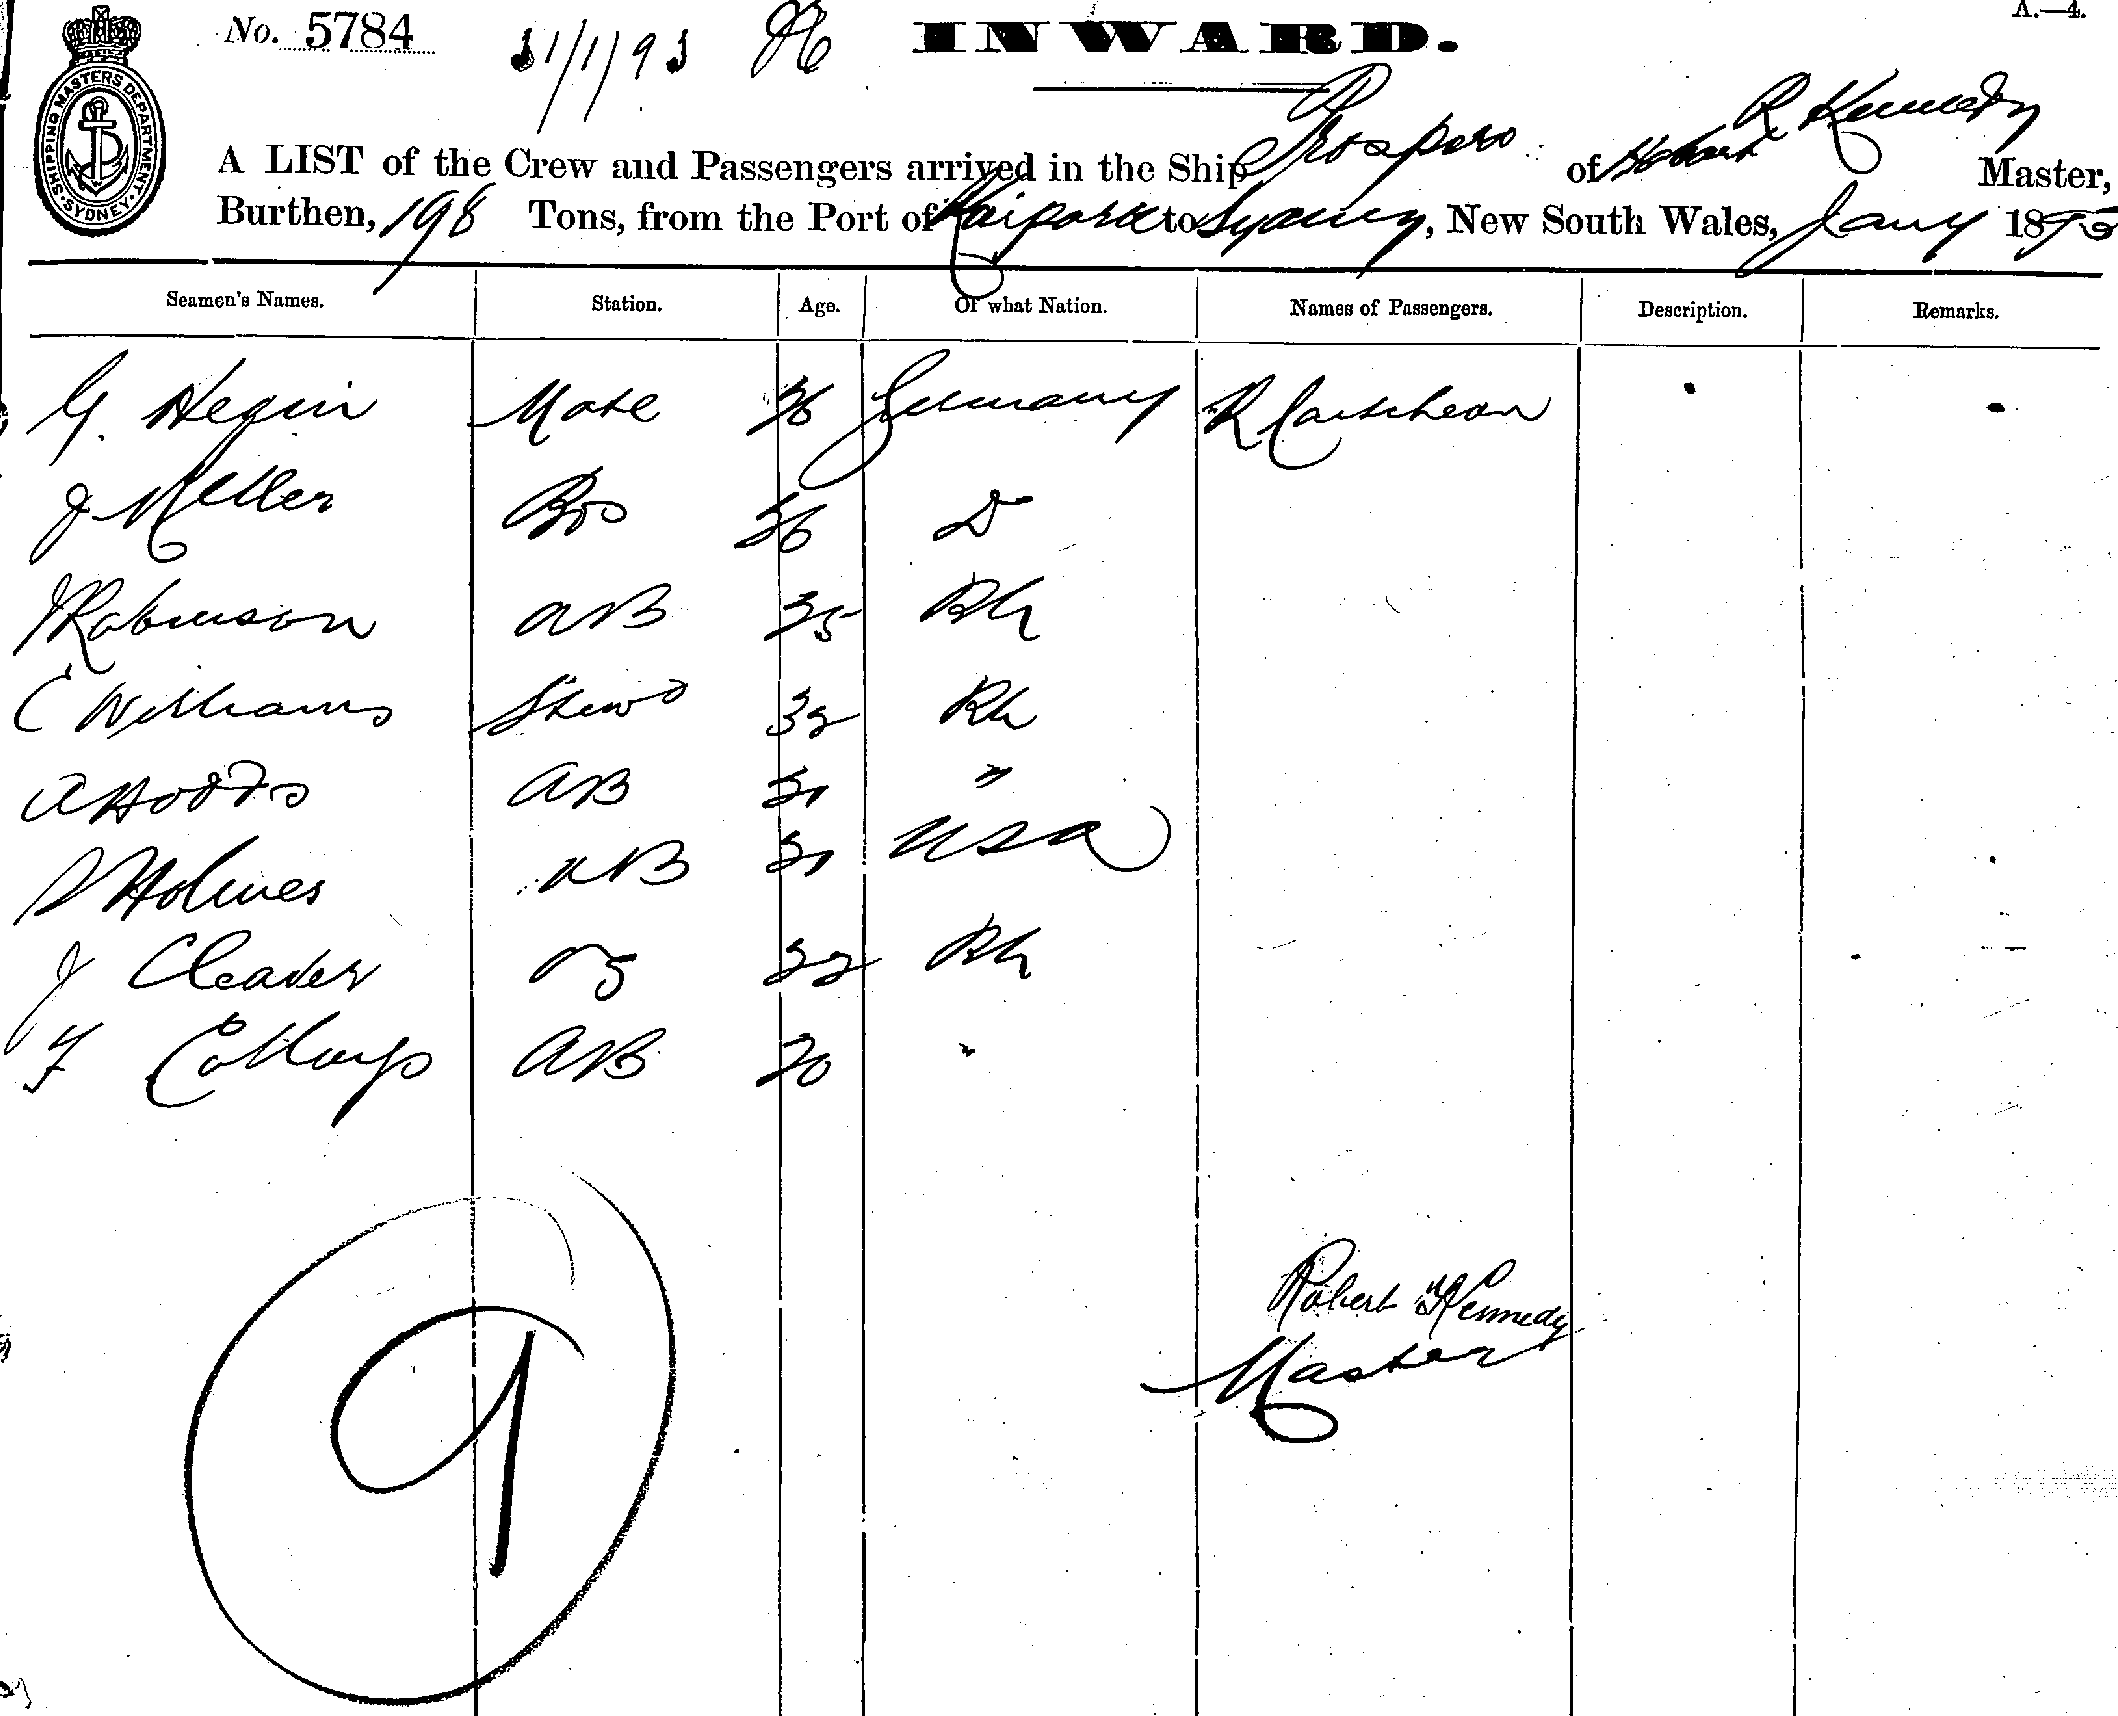 No. 5784 31/1/93 INWARD. A.—4.
SHIPPING MASTERS DEPARTMENT SYDNEY
R Kennedy
A LIST of the Crew and Passengers arrived in the Ship Prospero of Hobart Master,
Burthen, 198 Tons, from the Port of Kaipara to Sydney, New South Wales, Jany 1893
Seamen's Names. Station. Age. Of what Nation. Names of Passengers. Description. Remarks.
G. Hegin Mate 36 Germany R
J Miller Bos 36 D
J Robinson AB 35
C Williams Stewd 32
A Hodds AB 31 "
Holmes AB 31 USA
J Cleaver 32
F AB 20 "
9
Robert Kennedy
Master